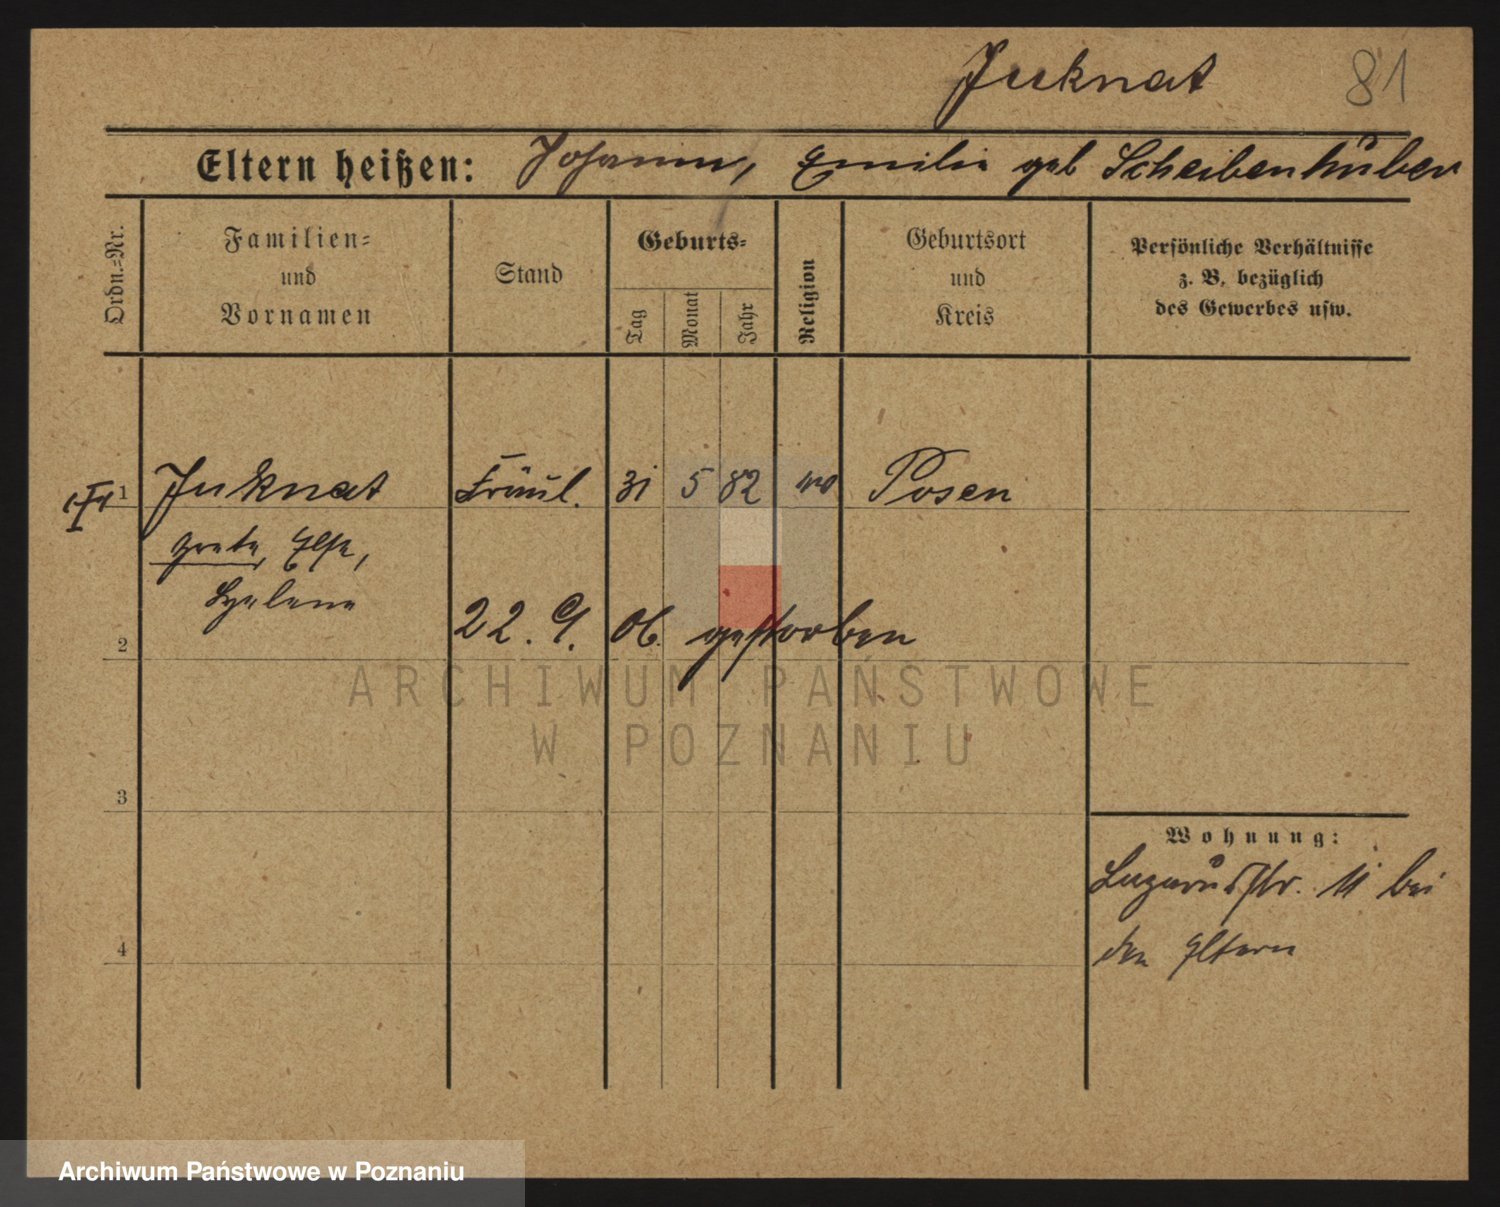 Juknat 81
Eltern heißen: Johann, Emilie geb Scheibenhuber
Ordn.-Nr.
Familien-
und
Vornamen
Stand
Geburts-
Tag
Monat
Jahr
Religion
Geburtsort
und
Kreis
Persönliche Verhältnisse
z. B. bezüglich
des Gewerbes usw.
1 Juknat Fräul. 31 5 82 Posen
Else,
Helene
22. 9. 06. gestorben
2
3
4
Wohnung:
Lazarusstr. 11 bei
den Eltern
ARCHIWUM PAŃSTWOWE
W POZNANIU
Archiwum Państwowe w Poznaniu